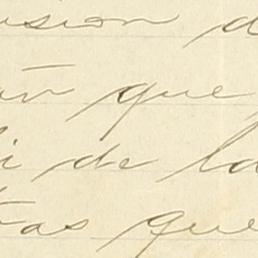 usion d
an que
i de la
tras que